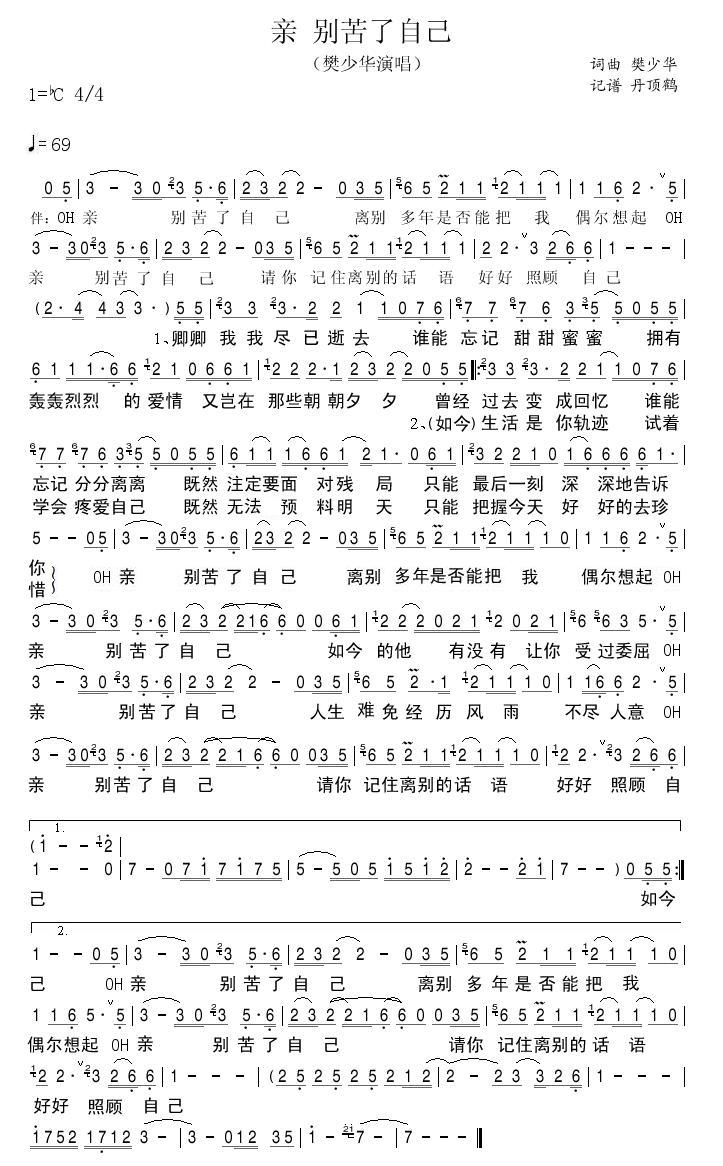 亲 别苦了自己
（樊少华演唱）
词曲 樊少华
记谱 丹顶鹤
1=♭C 4/4
♩=69
0 5 | 3 - 3 0 3 5·6 | 2 3 2 2 - 0 3 5 | 6 5 2 1 1 2 1 1 1 | 1 1 6 2· 5 |
伴：OH 亲 别苦了自己 离别 多年是否能把 我 偶尔想起 OH
3 - 3 0 3 5·6 | 2 3 2 2 - 0 3 5 | 6 5 2 1 1 2 1 1 1 | 2 2· 3 2 6 6 | 1 - - - |
亲 别苦了自 己 请你 记住离别的话 语 好好 照顾 自己
(2· 4 4 3 3· ) 5 5 | 3 3 3· 2 2 1 1 0 7 6 | 7 7 7 6 3 5 5 0 5 5 |
1、卿卿 我我尽已逝去 谁能 忘记 甜甜蜜蜜 拥有
6 1 1 1·6 6 | 2 1 0 6 6 1 | 2 2 2·1 2 3 2 2 0 5 5 :| 3 3 3· 2 2 1 1 0 7 6 |
轰轰烈烈 的 爱情 又岂在 那些朝朝夕 夕 曾经 过去变 成回忆 谁能
2、(如今)生活是 你轨迹 试着
7 7 7 6 3 5 5 0 5 5 | 1 1 1 6 1 6 6 1 | 2 1· 0 6 1 | 3 2 2 1 0 1 6 6 6 6 | 1· |
忘记 分分离离 既然 注定要面 对残 局 只能 最后一刻 深 深地告诉
学会 疼爱自己 既然 无法 预 料明 天 只能 把握今天 好 好的去珍
5 - - 0 5 | 3 - 3 0 3 5·6 | 2 3 2 2 - 0 3 5 | 6 5 2 1 1 2 1 1 1 0 | 1 1 6 2· 5 |
你 OH 亲 别苦了自己 离别 多年是否能把 我 偶尔想起 OH
惜
3 - 3 0 3 5·6 | 2 3 2 2 1 6 6 0 0 6 1 | 2 2 2 0 2 1 2 0 2 1 | 6 6 3 5· 5 |
亲 别苦了自 己 如今 的他 有没有 让你 受过委屈 OH
3 - 3 0 3 5·6 | 2 3 2 2 - 0 3 5 | 6 5 2·1 2 1 1 1 0 | 1 1 6 6 2· 5 |
亲 别苦了自 己 人生 难免经历风 雨 不尽人意 OH
3 - 3 0 3 5·6 | 2 3 2 2 1 6 6 0 0 3 5 | 6 5 2 1 1 2 1 1 1 0 | 2 2· 3 2 6 6 |
亲 别苦了自 己 请你 记住离别的话 语 好好 照顾自
1.
(1 - - 2 |
1 - - 0 | 7 - 0 7 1 7 1 7 5 | 5 - 5 0 5 1 5 1 2 | 2 - - 2 1 | 7 - - ) 0 5 5 :|
己 如今
2.
1 - - 0 5 | 3 - 3 0 3 5·6 | 2 3 2 2 - 0 3 5 | 6 5 2 1 1 2 1 1 1 0 |
己 OH 亲 别苦了自 己 离别 多年是否能把 我
1 1 6 5· 5 | 3 - 3 0 3 5·6 | 2 3 2 2 1 6 6 0 0 3 5 | 6 5 2 1 1 2 1 1 1 0 |
偶尔想起 OH 亲 别苦了自 己 请你 记住离别的话 语
2 2· 3 2 6 6 | 1 - - - | (2 5 2 5 2 5 2 1 2 | 2 - 2 3 3 2 6 |
好好 照顾 自己
1 7 5 2 1 7 1 2 3 - | 3 - 0 1 2 3 5 | 1 - 7 - | 7 - - - ‖